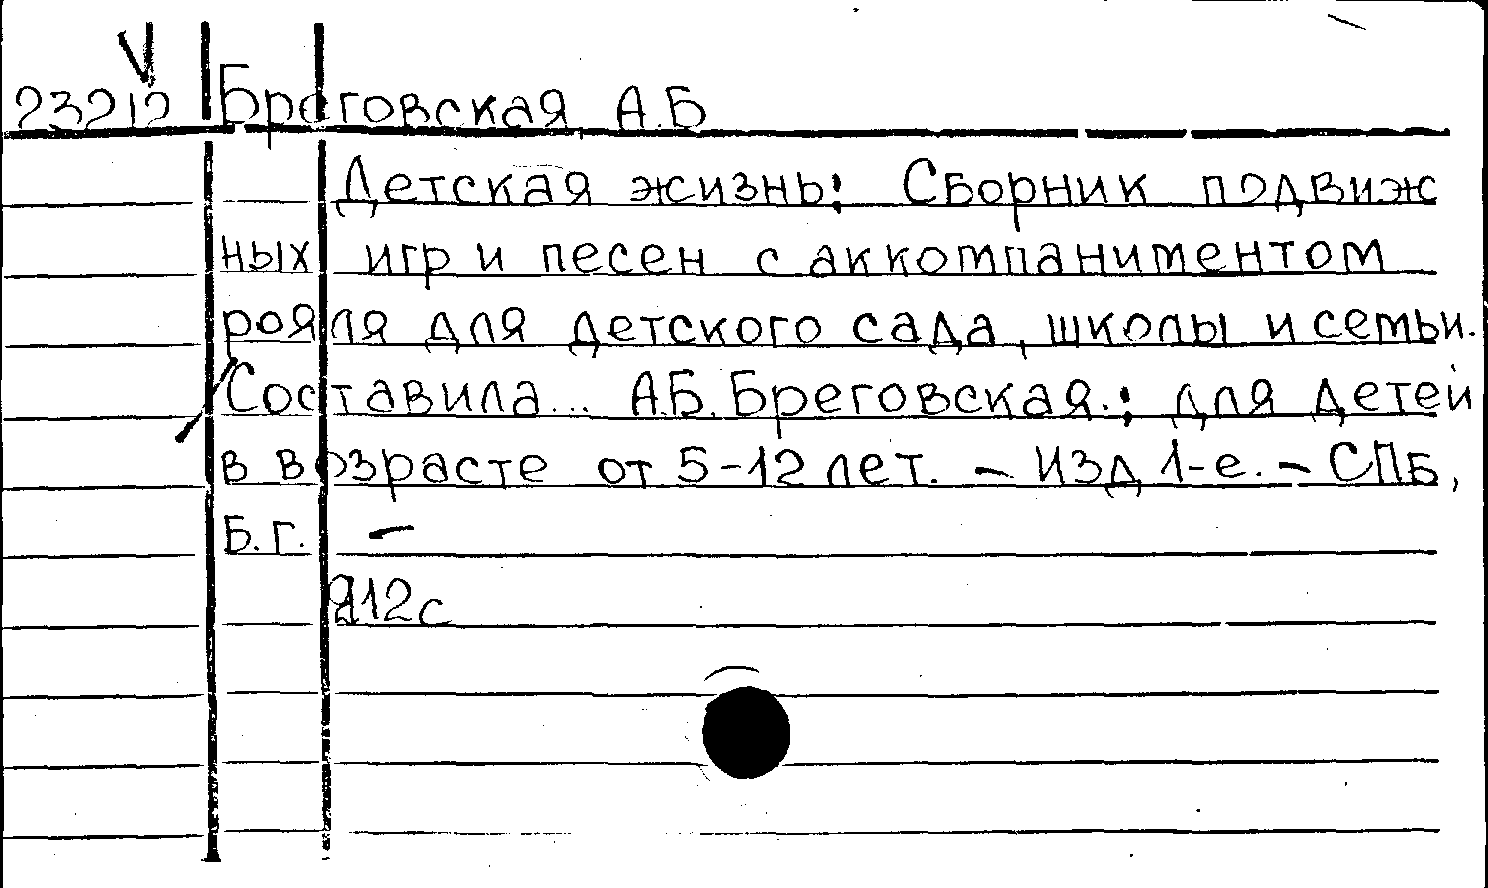 V
23212 Бреговская А.Б
Детская жизнь: Сборник подвиж
ных игр и песен с аккомпаниментом
рояля для детского сада, школы и семьи.
Составила... А.Б. Бреговская.; для детей
в возрасте от 5-12 лет. - Изд 1-е. - СПБ,
Б.г. -
212с